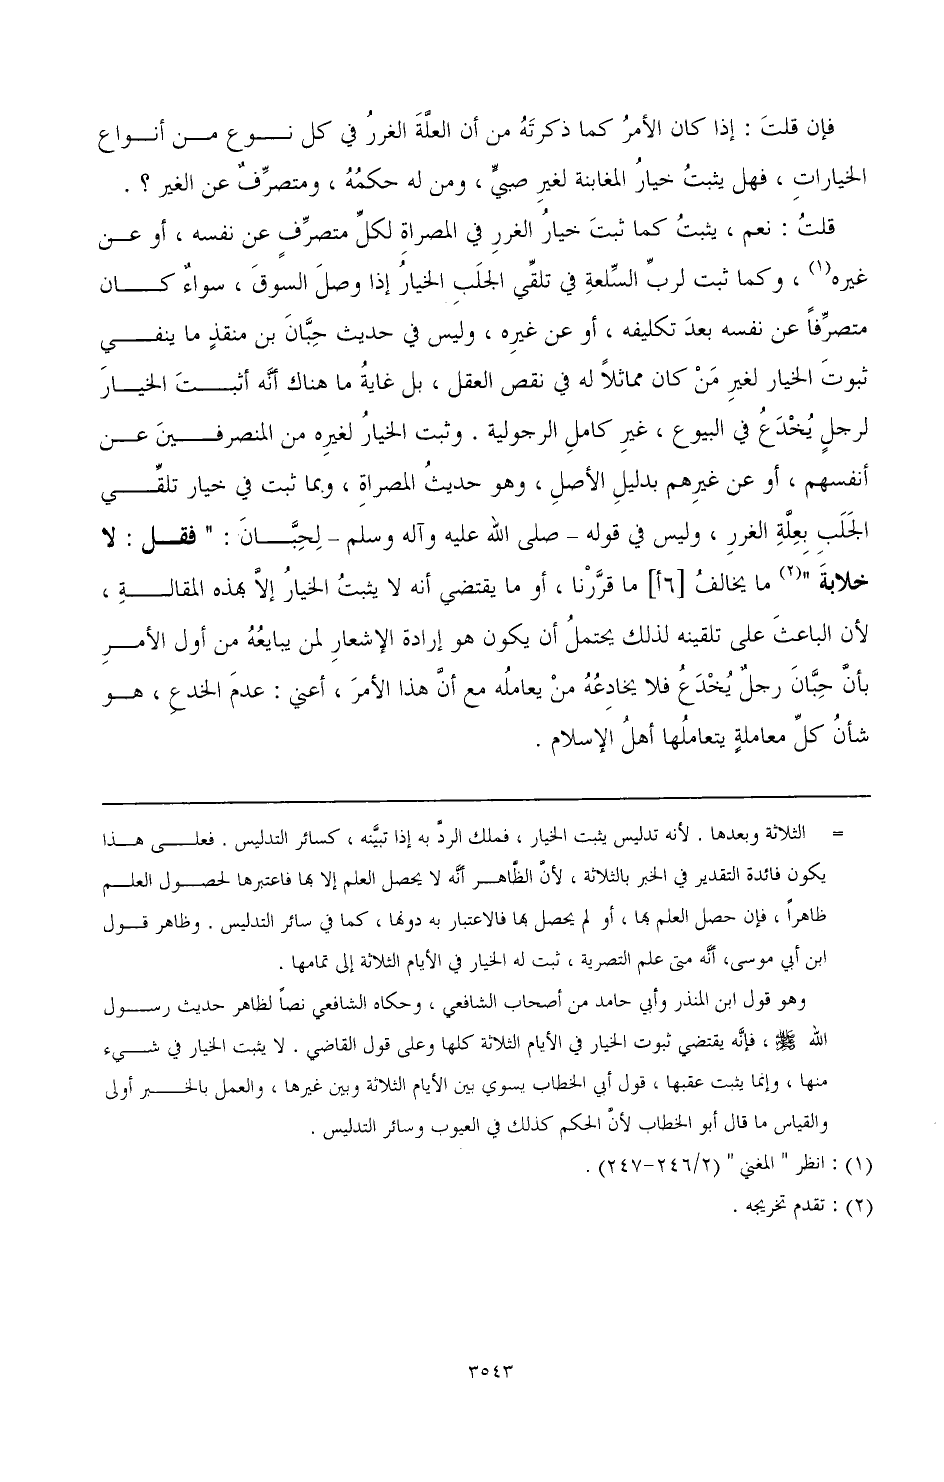 فإن قلتَ : إذا كان الأمرُ كما ذكرتَهُ من أن العلَّةَ الغررُ في كل نوع من أنواع
الخياراتِ ، فهل يثبتُ خيارُ المغابنة لغير صبيٍّ ، ومن له حكمُهُ ، ومتصرِّفٌ عن الغير ؟ .
قلتُ : نعم ، يثبتُ كما ثبتَ خيارُ الغرر في المصراة لكلِّ متصرِّفٍ عن نفسه ، أو عن
غيره(١) ، وكما ثبت لربِّ السِّلعةِ في تلقِّي الجلَبِ الخيارُ إذا وصلَ السوقَ ، سواءٌ كان
متصرِّفاً عن نفسه بعدَ تكليفه ، أو عن غيرِه ، وليس في حديث حِبَّانَ بن منقذٍ ما ينفي
ثبوتَ الخيار لغيرِ مَنْ كان مماثلاً له في نقص العقل ، بل غايةُ ما هناك أنَّه أثبتَ الخيارَ
لرجلٍ يُخْدَعُ في البيوع ، غيرِ كاملِ الرجولية . وثبت الخيارُ لغيرِه من المنصرفينَ عن
أنفسهم ، أو عن غيرهم بدليلِ الأصلِ ، وهو حديثُ المصراة ، وبما ثبت في خيار تلقِّي
الجَلَبِ بعِلَّةِ الغررِ ، وليس في قوله – صلى الله عليه وآله وسلم – لِحِبَّانَ : " فقل : لا
خلابةَ "(٢) ما يخالفُ [٦أ] ما قرَّرْنا ، أو ما يقتضي أنه لا يثبتُ الخيارُ إلاَّ بهذه المقالةِ ،
لأن الباعثَ على تلقينه لذلك يحتملُ أن يكون هو إرادة الإشعار لمن يبايعُهُ من أول الأمرِ
بأنَّ حِبَّانَ رجلٌ يُخْدَعُ فلا يخادعُهُ منْ يعاملُه مع أنَّ هذا الأمرَ ، أعني : عدمَ الخدعِ ، هو
شأنُ كلِّ معاملةٍ يتعاملُها أهلُ الإسلام .
= الثلاثة وبعدها . لأنه تدليس يثبت الخيار ، فملك الردّ به إذا تبيَّنه ، كسائر التدليس . فعلى هذا
يكون فائدة التقدير في الخبر بالثلاثة ، لأنّ الظَّاهر أنَّه لا يحصل العلم إلا بها فاعتبرها لحصول العلم
ظاهراً ، فإن حصل العلم بها ، أو لم يحصل بها فالاعتبار به دونها ، كما في سائر التدليس . وظاهر قول
ابن أبي موسى، أنَّه متى علم التصرية ، ثبت له الخيار في الأيام الثلاثة إلى تمامها .
وهو قول ابن المنذر وأبي حامد من أصحاب الشافعي ، وحكاه الشافعي نصاً لظاهر حديث رسول
الله ﷺ ، فإنَّه يقتضي ثبوت الخيار في الأيام الثلاثة كلها وعلى قول القاضي . لا يثبت الخيار في شيء
منها ، وإنما يثبت عقبها ، قول أبي الخطاب يسوي بين الأيام الثلاثة وبين غيرها ، والعمل بالخبر أولى
والقياس ما قال أبو الخطاب لأنَّ الحكم كذلك في العيوب وسائر التدليس .
(١) : انظر " المغني " (٢/٢٤٦-٢٤٧) .
(٢) : تقدم تخريجه .
٣٥٤٣